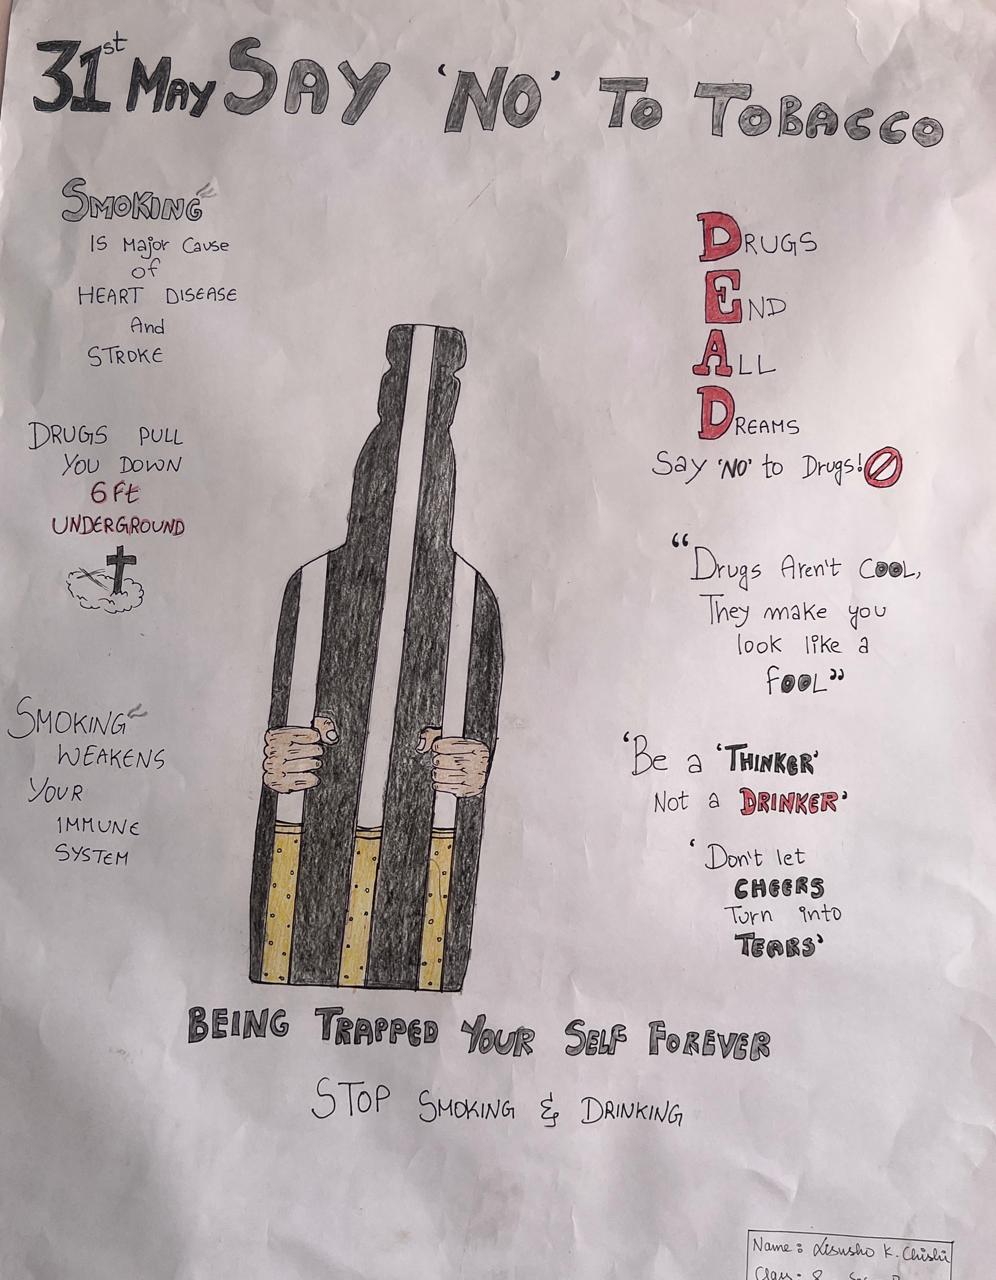 31st May Say 'NO' To Tobacco
Smoking
IS Major Cause
of
HEART DISEASE
And
STROKE
DRUGS PULL
YOU DOWN
6Ft
UNDERGROUND
SMOKING
WEAKENS
YOUR
IMMUNE
SYSTEM
DRUGS
END
ALL
DREAMS
Say 'NO' to Drugs!
"Drugs Aren't COOL,
They make you
look like a
FOOL"
'Be a 'THINKER'
Not a DRINKER'
'Don't let
CHEERS
Turn into
TEARS'
BEING TRAPPED YOUR SELF FOREVER
STOP SMOKING & DRINKING
Name: Lisusho K. Chishi
Class: 8